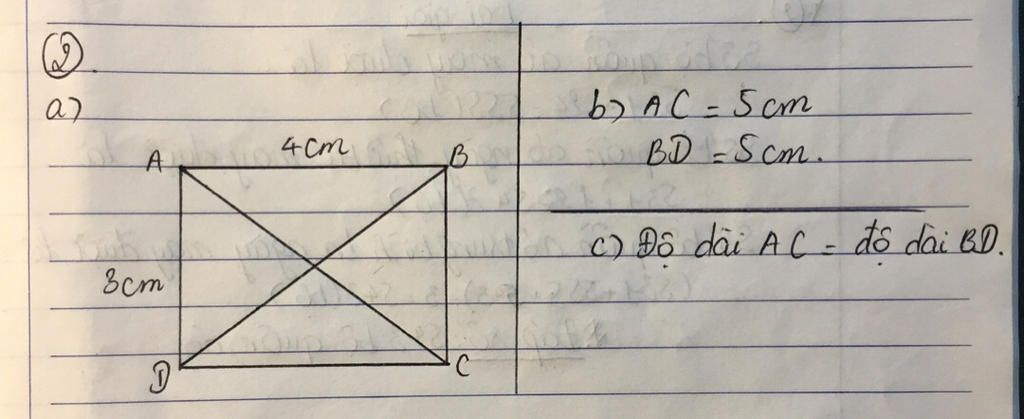 2.
a)
4cm
A
B
3cm
D
C
b) AC = 5cm
BD = 5cm.
c) Độ dài AC = độ dài BD.